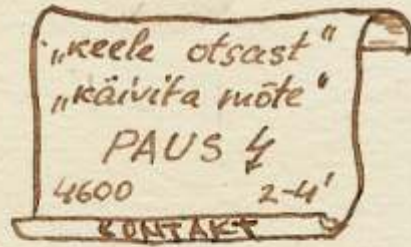 „keele otsast“
„käivita mõte“
PAUS 4
4600 2-4'
KONTAKT